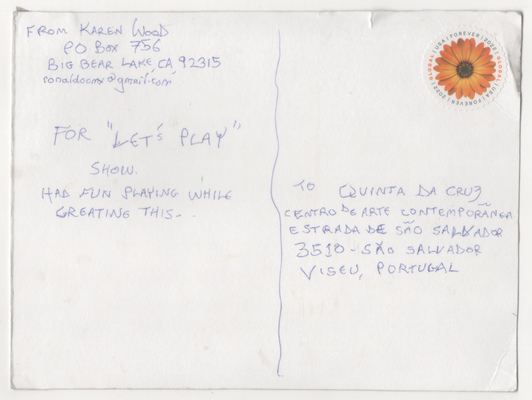 FROM KAREN WOOD
PO BOX 756
BIG BEAR LAKE, CA 92315
ronaldocmx@gmail.com
FOR "LET'S PLAY"
SHOW.
HAD FUN PLAYING WHILE
CREATING THIS..
TO QUINTA DA CRUZ
CENTRO DE ARTE CONTEMPORÂNEA
ESTRADA DE SÃO SALVADOR
3510-SÃO SALVADOR
VISEU, PORTUGAL
GLOBAL USA FOREVER 2022 GLOBAL USA FOREVER 2022